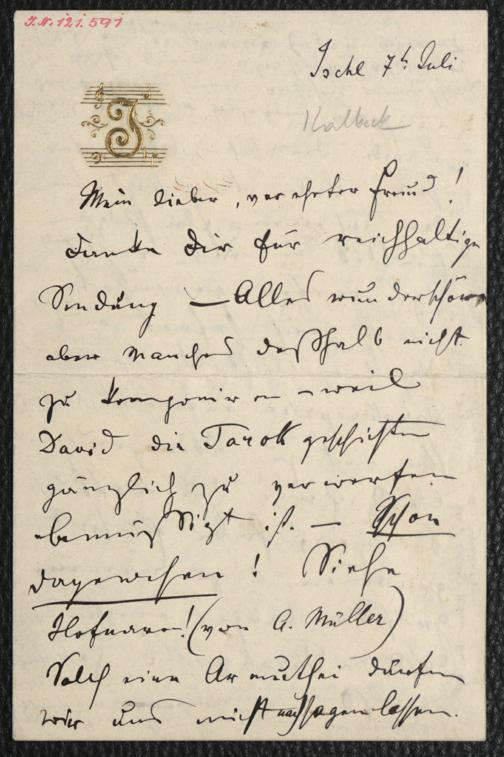 I.N. 121.591
Ischl 7t Juli
Kalbeck
J
Mein lieber, verehrter Freund!
Danke Dir für reichhaltige
Sendung – Alles wunderschön
aber manches deßhalb nicht
zu komponiren – weil
David die Tarok geschichten
gänzlich zu verwerfen
bemüssigt ist. – Schon
dagewesen! Siehe
Hofnarr! (von A. Müller)
Solch eine Armuthei dürfen
wir uns nicht nachsagen lassen.